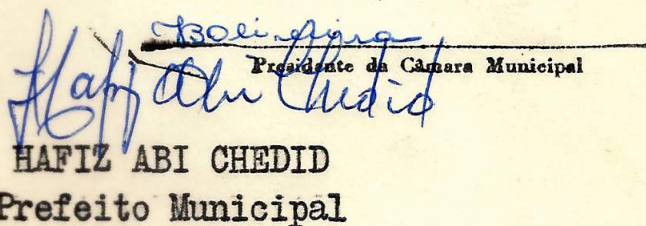 Presidente da Câmara Municipal
Hafiz Abi Chedid
HAFIZ ABI CHEDID
Prefeito Municipal